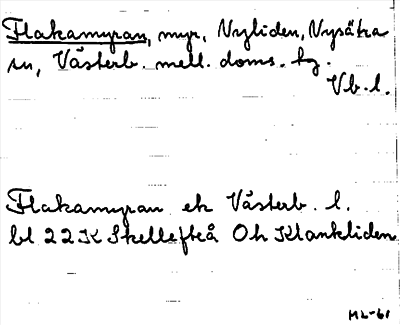 Flakamyran, myr, Nyliden, Nysätra
sn, Västerb. mell. doms. hg.
Vb. l.
Flakamyran ek Västerb. l.
bl 22K Skellefteå Oh Klankliden
ML-61